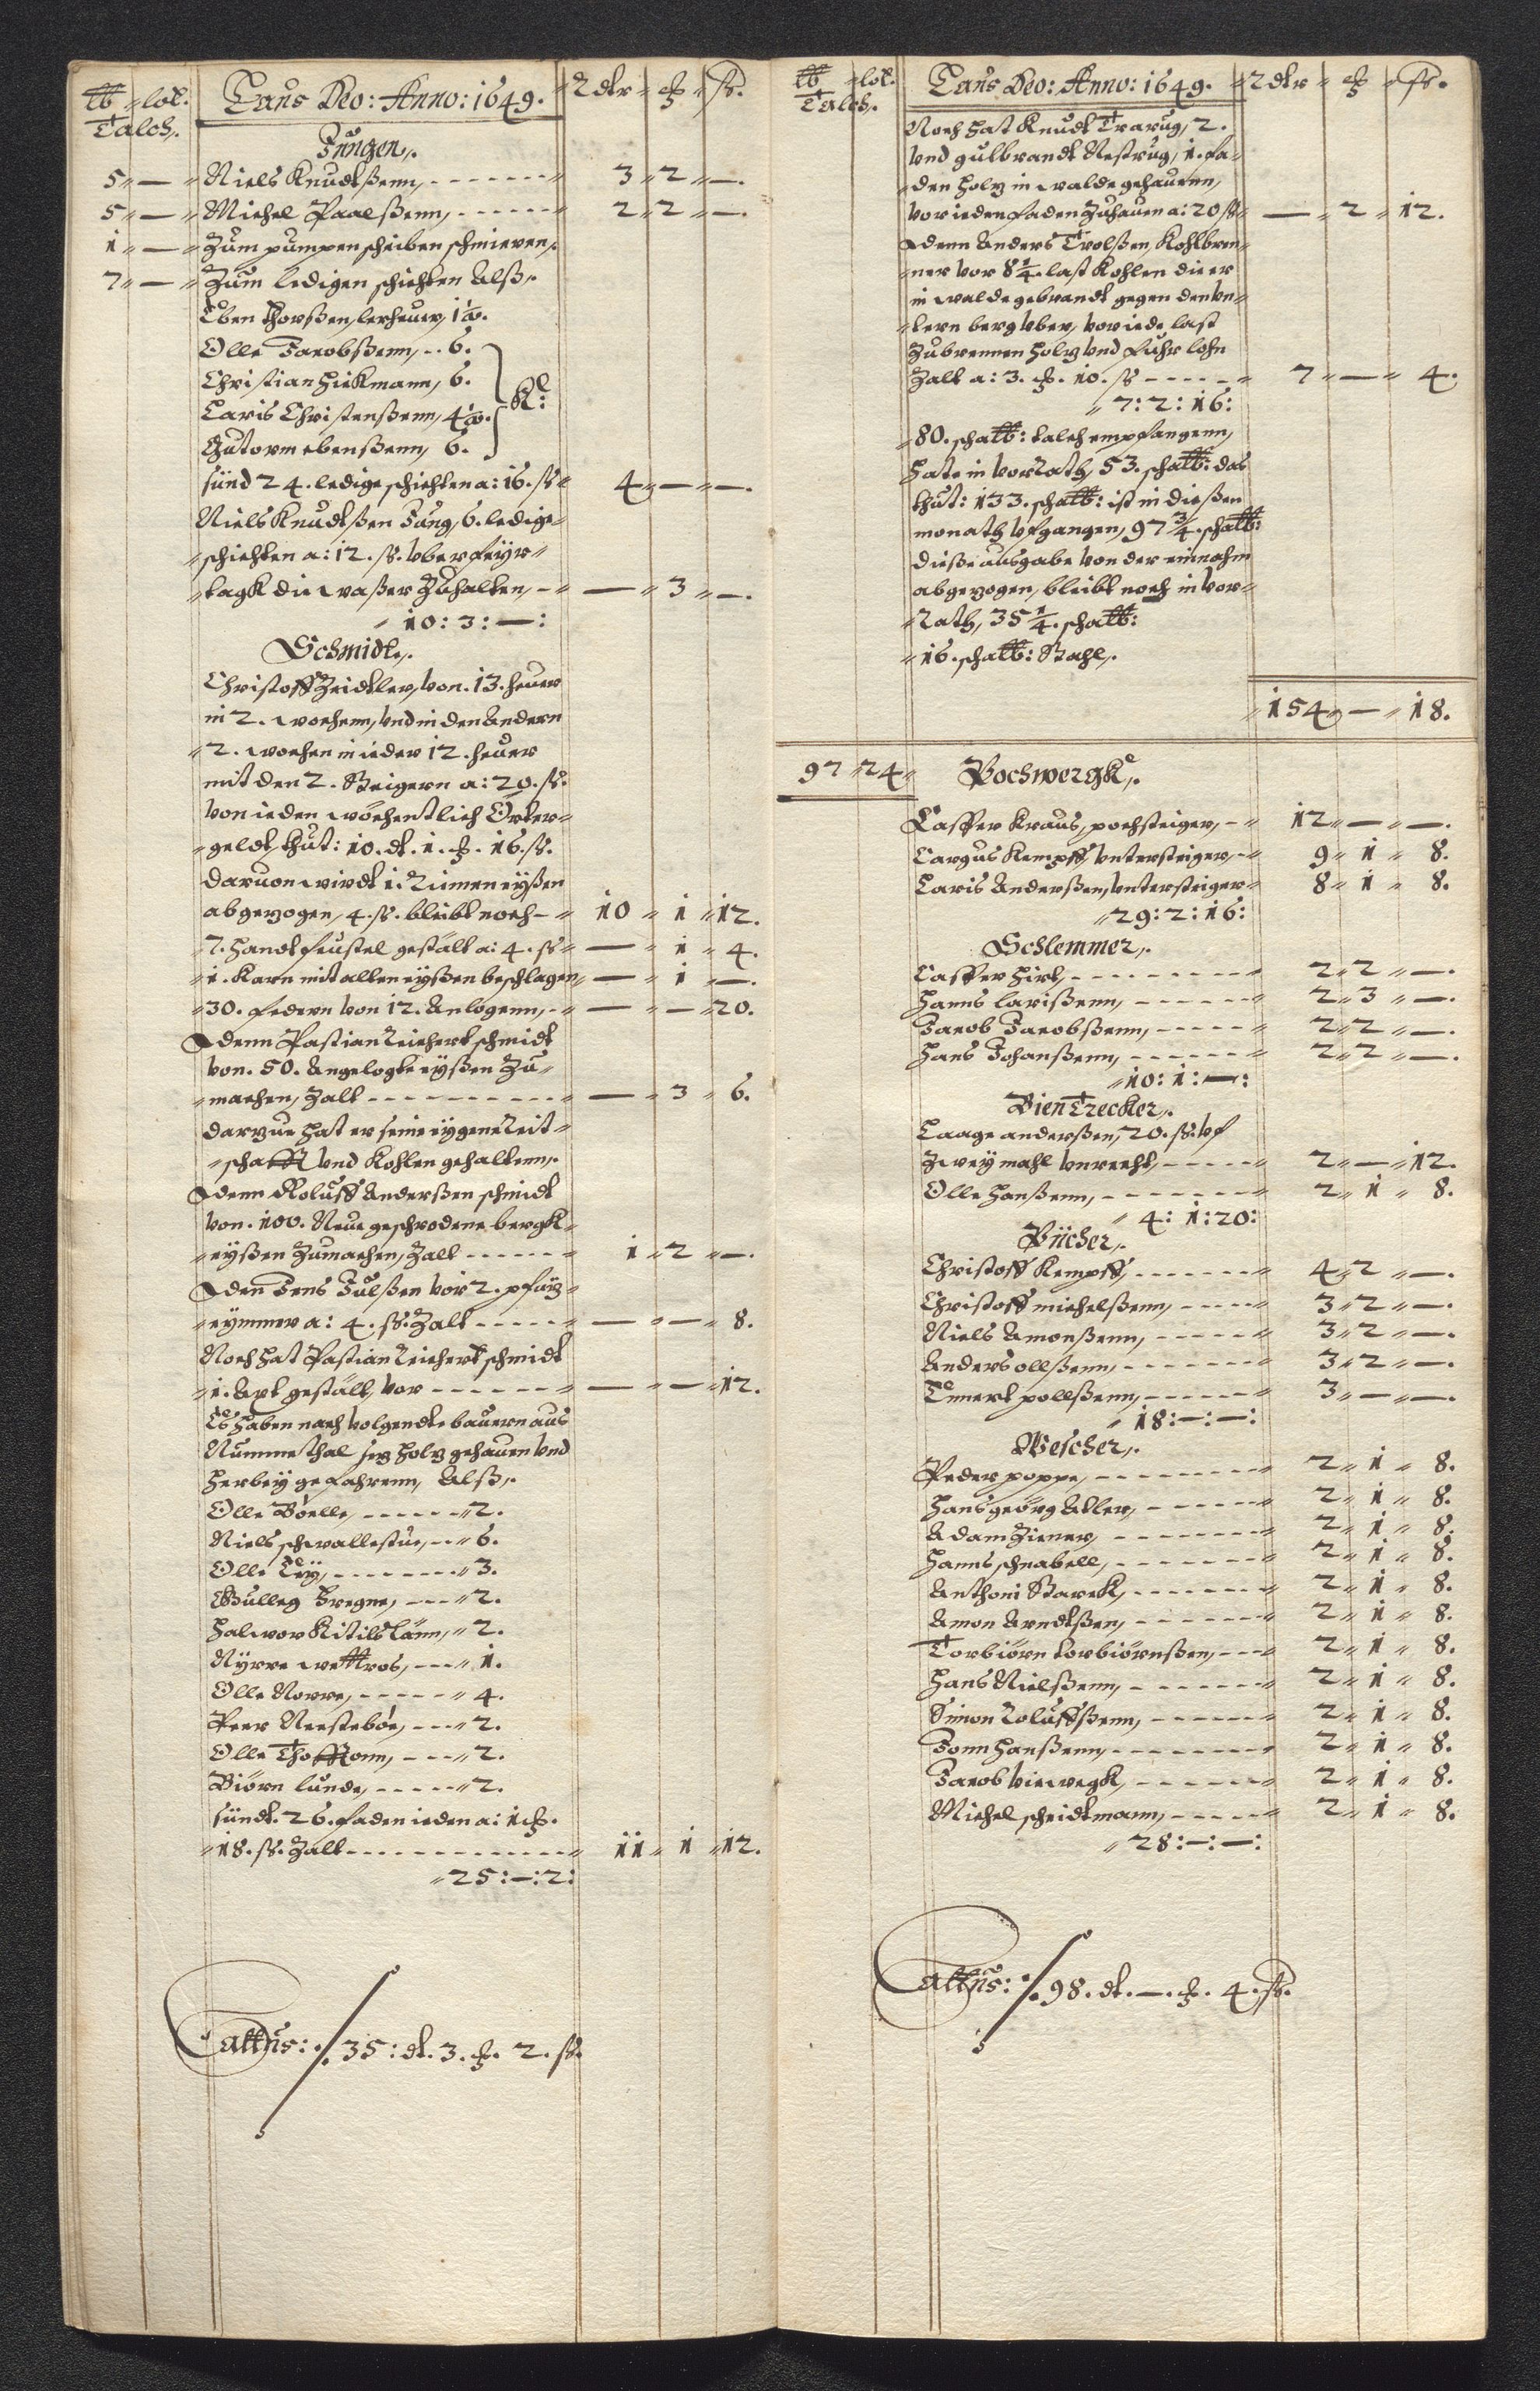 lb lot. Laus Deo: Anno: 1649. Rdlr
Talch.
Jungen.
5 — Niels Knudtßenn, 3 2 —.
5 — Michel Paalßenn, 2 2 —.
1 — Zum pumpen scheiben schmieren,
7 — Zum ledigen schichten Alß,
Eben Thorßen, lerheuer,
Olle Jacobßenn, 6.
Christian Hickmann, 6.
Laris Christenßenn,
Gutorm ebenßenn, 6.
sünd 24. ledige schichten a: 16. ß 4 — —.
Niels Knudtßen Jung, 6. ledige
schichten a: 12. ß. vber feÿr
tagk die waßer Zuhalten, — 3 —.
10: 3: —:
Schmidt,
Christoff Zeidtler, von. 13. heuer
in 2. wochenn, vnd in den Andern
2. wochen in ieder 12. heuer
mit den 2. Steigern a: 20. ß.
von ieden wöchentlich Örter
geldt, thut: 10. dt. 1. 16. ß.
daruon wirdt 1. Rümen eÿßen
abgezogen, 4. ß. bleibt noch 10 1 12.
7. handt feustel gestält a: 4. ß — 1 4.
1. Karn mit alten eÿßen beschlagen — 1 —.
30. federn von 12. Anlogenn, — — 20.
denn Pastian Reichert schmidt
von. 50. Angelogte eÿßen Zu
machen, Zalt — 3 6.
darzue hat er seine eÿgene Zeit
schafft vnd Kohlen gehaltenn,
denn Roluff Anderßen schmidt
von. 100. Neue geschrodene bergk
eÿßen Zumachen, Zalt 1 2 —.
den Jens Julßen vor 2. pfüz
eÿmmer a: 4. ß. Zalt — — 8.
Noch hat Pastian Reichert schmidt
1. Axt gestält, vor — — 12.
Es haben nach volgendte bauern aus
Numme thal sez holz gehauen vnd
herbeÿ gefahrenn, Alß,
Olle Böelle, 2.
Niels schwallestue, 6.
Olle Leÿ, 3.
Gulleg Fregne, 2.
Halwor Kitilslänn, 2.
Nÿrre wettros, 1.
Olle Norre, 4.
Peer Neestebös, 2.
Olle Thoffonn, 2.
Biörn lunde, 2.
sündt. 26. faden ieden a: 1
18. ß. Zalt 11 1 12.
25: —: 2:
Lattus: 35: dt. 3. 2. ß.
lb lot. Laus Deo: Anno: 1649. Rdlr
Talch.
Noch hat Knudt Traarug, 2.
vnd gulbrandt Nestrug, 1. fa
den holz in walde gehauenn,
vor ieden faden Zuhauen a: 20 ß — 2 12.
denn Anders Trolßen, Kohlbren
ner vor 8 1/4. last Kohlen die er
in walde gebrandt gegen den vn
tern berg vber, vor iede last
Zubrennen holz vnd fuhr lohn
Zalt a: 3. 10. ß 7 — 4.
7: 2: 16:
80. schalb: talch empfangenn,
hate in vorrath, 53. schalb: das
thut: 133. schalb: ist in dießen
monath vfgangen, 97 3/4. schalb:
dieße ausgabe von der einnahm
abgezogen, bleibt noch in vor
Rath, 35 1/4. schalb:
16. schalb: Stahl,
154 — 18.
97 24 Pochwergk,
Casper Kraus, pochsteiger, 12 — —.
Cargus Kempff, vntersteiger, 9 1 8.
Laris Anderßen, vntersteiger 8 1 8.
29: 2: 16:
Schlemmer,
Casper hirt, 2 2 —.
Hanns larißenn, 2 3 —.
Jacob Jacobßenn, 2 2 —.
Hans Johanßenn, 2 2 —.
10: 1: —:
BienTrecker,
Laage anderßen, 20. ß. vf
Zweÿ mahl vnrecht, 2 — 12.
Olle Hanßenn, 2 1 8.
4: 1: 20:
Pücher,
Christoff Kempff, 4 2 —.
Christoff michelßenn, 3 2 —.
Niels Amonßenn, 3 2 —.
Anders ollßenn, 3 2 —.
Ennert pollßenn, 3 — —.
18: —: —:
Wescher,
Peder poppe, 2 1 8.
Hans georg Adler, 2 1 8.
Adam Ziener, 2 1 8.
Hanns schnabell, 2 1 8.
Anthoni Starck, 2 1 8.
Amon Arndtßen, 2 1 8.
Torbiörn torbiörnßen, 2 1 8.
Hans Nielßenn, 2 1 8.
Simon Roluffßenn, 2 1 8.
Jonn Hanßenn, 2 1 8.
Jacob viewegk, 2 1 8.
Michel scheidtmann, 2 1 8.
28: —: —:
Lattus: 98. dt. —. 4. ß.